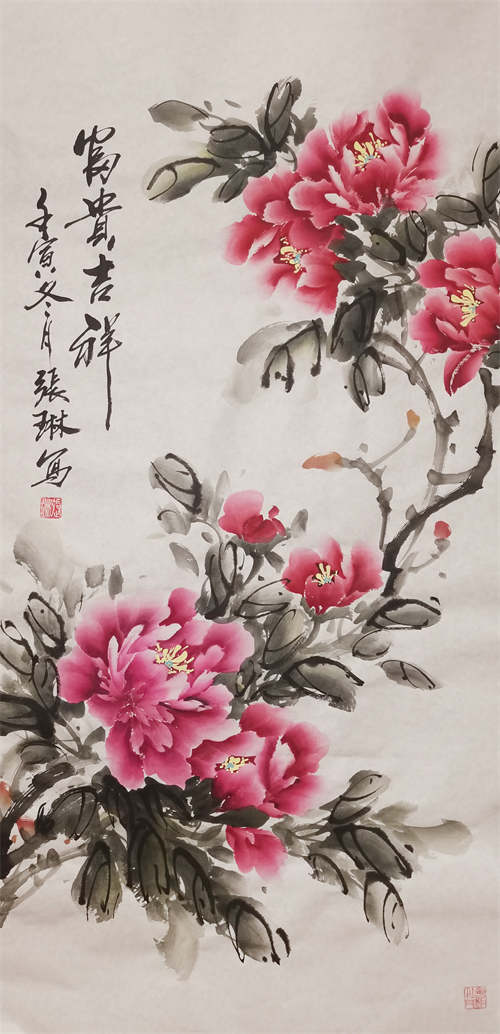 富貴吉祥
壬寅冬月張琳寫